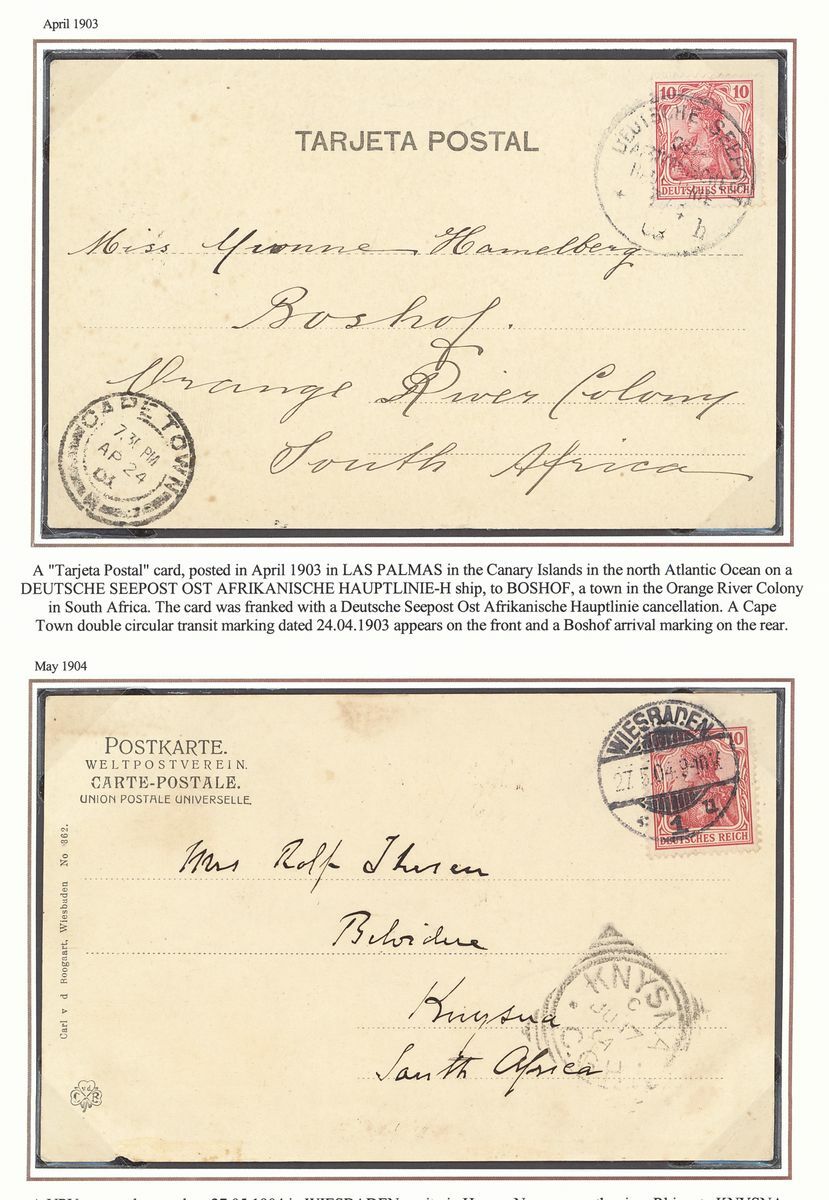 April 1903
10 10
DEUTSCHES REICH
DEUTSCHE SEEPOST
03 h
TARJETA POSTAL
Miss Yvonne Hamelberg
Boshof.
Orange River Colony
South Africa
CAPE TOWN
7.30 PM
AP 24
03
A "Tarjeta Postal" card, posted in April 1903 in LAS PALMAS in the Canary Islands in the north Atlantic Ocean on a
DEUTSCHE SEEPOST OST AFRIKANISCHE HAUPTLINIE-H ship, to BOSHOF, a town in the Orange River Colony
in South Africa. The card was franked with a Deutsche Seepost Ost Afrikanische Hauptlinie cancellation. A Cape
Town double circular transit marking dated 24.04.1903 appears on the front and a Boshof arrival marking on the rear.
May 1904
POSTKARTE.
WELTPOSTVEREIN.
CARTE-POSTALE.
UNION POSTALE UNIVERSELLE.
WIESBADEN
27.5.04.9-10V.
* 1. u
10
DEUTSCHES REICH
Mrs Rolf Thesen
Belvidere
Knysna
South Africa
KNYSNA
C
JU 17
04
C.G.H.
Carl v d Boogaart, Wiesbaden No 862.